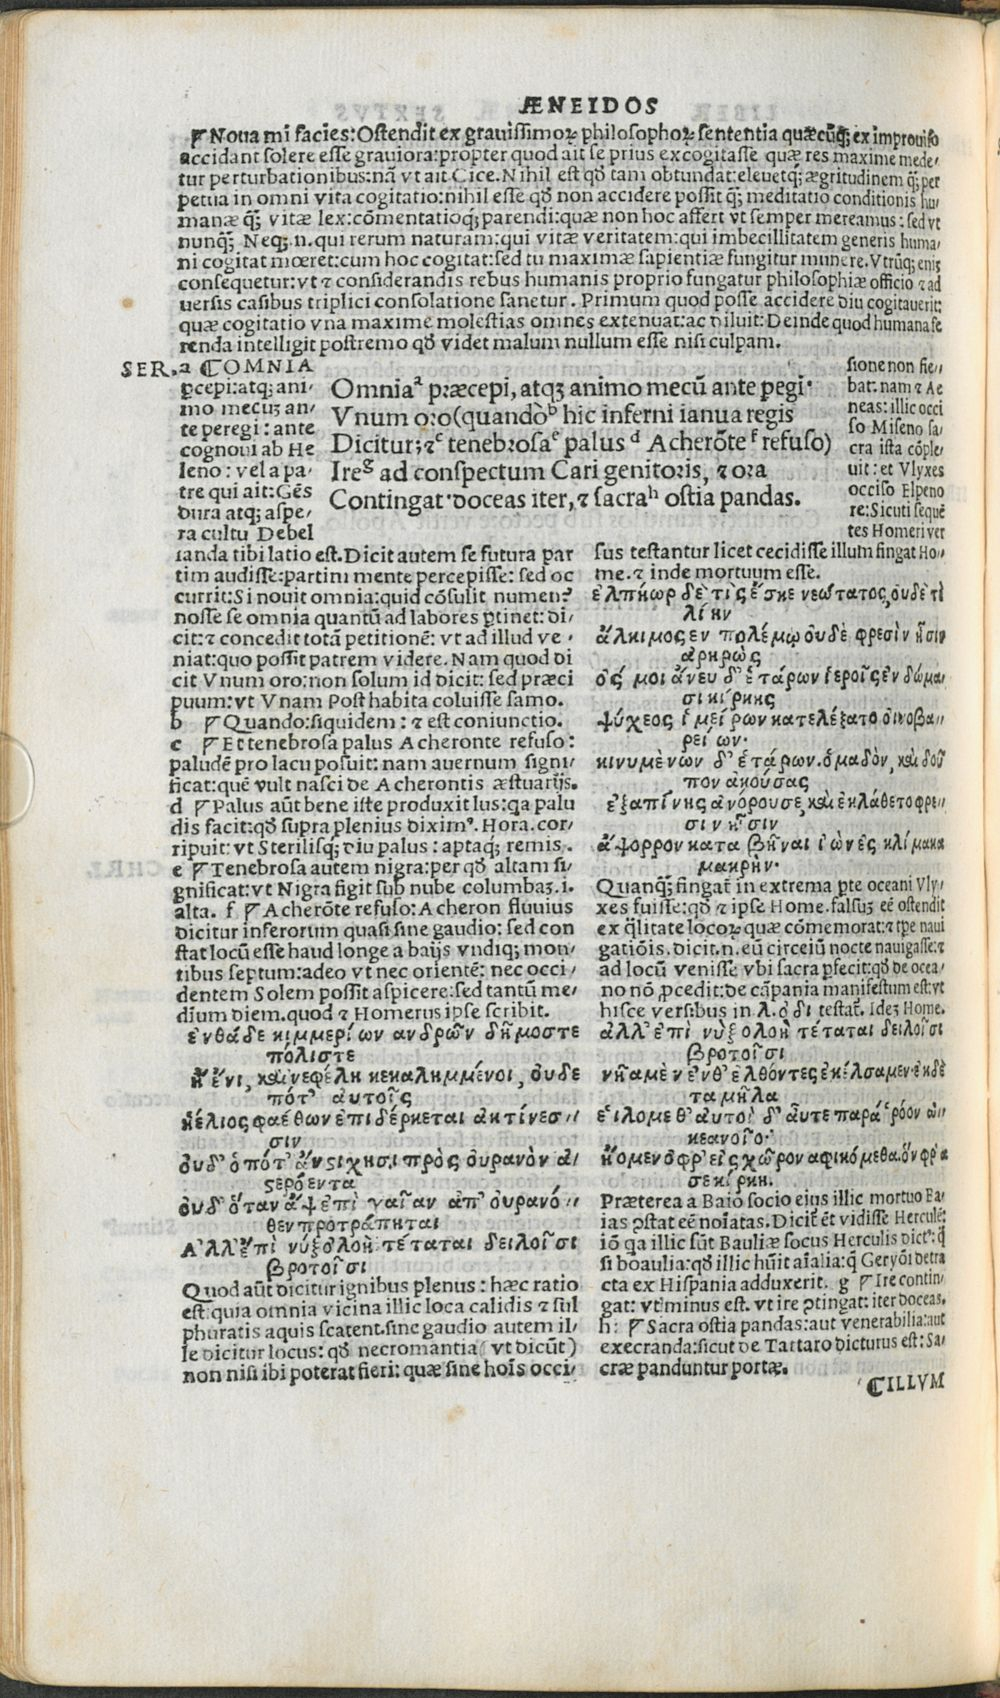 ÆNEIDOS
☞Noua mi facies:Ostendit ex grauissimoꝝ philosophoꝝ sententia quæcūqꝫ ex improuiso
accidant solere esse grauiora:propter quod ait se prius excogitasse quæ res maxime mede,
tur perturbationibus:nā vt ait Cice.Nihil est qđ tam obtundat:eleuetqꝫ ægritudinem qꝫ per
petua in omni vita cogitatio:nihil esse qđ non accidere possit qꝫ meditatio conditionis hu,
manæ qꝫ vitæ lex:cōmentatioqꝫ parendi:quæ non hoc affert vt semper mereamus:sed vt
nunqꝫ Neqꝫ.n.qui rerum naturam:qui vitæ veritatem:qui imbecillitatem generis huma,
ni cogitat mœret:cum hoc cogitat:sed tu maximæ sapientiæ fungitur munere.Vtrūqꝫ eniꝫ
consequetur:vt ⁊ considerandis rebus humanis proprio fungatur philosophiæ officio ⁊ ad
uersis casibus triplici consolatione sanetur. Primum quod posse accidere diu cogitauerit:
quæ cogitatio vna maxime molestias omnes extenuat:ac diluit:Deinde quod humana fe
renda intelligit postremo qđ videt malum nullum esse nisi culpam.
SER.a ⸿OMNIA
ꝑcepi:atqꝫ ani,
mo mecuꝫ an,
te peregi:ante
cognoui ab He
leno:vel a pa,
tre qui ait:Gēs
dura atqꝫ aspe,
ra cultu Debel
Omniaᵃ præcepi, atqꝫ animo mecū ante pegi·
Vnum oro(quandòᵇ hic inferni ianua regis
Dicitur;⁊ᶜ tenebrosaᵉ palus ᵈ Acherōte ᶠ refuso)
Ireᵍ ad conspectum Cari genitoris, ⁊ ora
Contingat·doceas iter,⁊ sacraʰ ostia pandas.
sione non fie,,
bat:nam ⁊ Ae
neas:illic occi
so Miseno sa,
cra ista cōple,
uit:et Vlyxes
occiso Elpeno
re:Sicuti sequē
tes Homeri ver
landa tibi latio est.Dicit autem se futura par
tim audisse:partim mente percepisse:sed oc
currit:Si nouit omnia:quid cōsulit numen?
nosse se omnia quantū ad labores ꝑtinet:di,
cit:⁊ concedit totā petitionē:vt ad illud ve,
niat:quo possit patrem videre.Nam quod di
cit Vnum oro:non solum id dicit:sed præci
puum:vt Vnam Post habita coluisse samo.
b ☞Quando:siquidem:⁊ est coniunctio.
c ☞Et tenebrosa palus Acheronte refuso:
paludē pro lacu posuit:nam auernum signi,
ficat:quē vult nasci de Acherontis æstuarijs.
d ☞Palus aūt bene iste produxit lus:ꝗa palu
dis facit:qđ supra plenius diximꝰ.Hora.cor,
ripuit:vt Sterilisqꝫ diu palus:aptaqꝫ remis.
e ☞Tenebrosa autem nigra:per qđ altam si,
gnificat:vt Nigra figit sub nube columbaꝫ.i.
alta. f ☞Acherōte refuso:Acheron fluuius
dicitur inferorum quasi sine gaudio:sed con
stat locū esse haud longe a baijs vndiqꝫ mon,
tibus septum:adeo vt nec orientē:nec occi,
dentem Solem possit aspicere:sed tantū me,
dium diem.quod ⁊ Homerus ipse scribit.
ἐνθάδε κιμμερίων ανδρῶν δῆμοστε
πόλιστε
ἠέρι, καὶ νεφέλη κεκαλημμένοι, ουδε
πότ' αυτοῖς
ἠέλιος φαέθων ἐπιδέρκεται ακτίνεσ,,
σιν
ουδ' ὁπότ' ἄν ϛιχησι πρὸς ουρανὸν ἀ
ϛερόεντα
ουδ' ὅταν ἄψ ἐπὶ γαῖαν απ' ουρανό,,
θεν προτράπηται
Αλλ' ἐπὶ νὺξ ολοὴ τέταται δειλοῖσι
βροτοῖσι
Quod aūt dicitur ignibus plenus:hæc ratio
est:quia omnia vicina illic loca calidis ⁊ sul
phuratis aquis scatent.sine gaudio autem il,
le dicitur locus:qđ necromantia( vt dicūt)
non nisi ibi poterat fieri:quæ sine hoīs occi,
sus testantur licet cecidisse illum fingat Ho,,
me.⁊ inde mortuum esse.
ἐλπήωρ δὲ τὶς ἔσκε νεώτατος, ουδὲ τὶ
λίην
ἄλκιμος εν πολέμῳ ουδὲ φρεσὶν ἧσιν
ἀρηρὼς
ὅς μοι ἄνευ δ' ἑτάρων ἱεροῖς ἐν δώμα,
σι κίρκης
ψύχεος ἱμείρων κατελέξατο οἰνοβα,,
ρείων·
κινυμένων δ' ἑτάρων.ὁμαδὸν, καὶ δοῦ
πον ακούσας
ἐξαπίνης ἀνόρουσε, καὶ ἐκλάθετο φρε,,
σιν ἧσιν
ἄψορρον κατα βῆναι ἰὼν ἐς κλίμακα
μακρὴν·
Quanqꝫ fingat in extrema ꝑte oceani Vly,
xes fuisse:qđ ⁊ ipse Home.falsuꝫ eē ostendit
ex q̄litate locoꝝ quæ cōmemorat:⁊ tꝑe naui
gatiōis.dicit.n.eū circeiū nocte nauigasse:⁊
ad locū venisse vbi sacra ꝑfecit:qđ de ocea,
no nō ꝓcedit:de cāpania manifestum est:vt
hisce versibus in λ.ὀδι testat̄. Ideꝫ Home.
αλλ' ἐπὶ νὺξ ολοὴ τέταται δειλοῖσι
βροτοῖσι
νῆα μὲν ἐνθ' ἐλθόντες ἐκέλσαμεν·ἐκδὲ
τα μῆλα
εἱλομεθ' αυτοὶ δ' αῦτε παρὰ ῥόον ὠ,
κεανοῖο·
ἤομεν ὀφρ' εἰς χῶρον αφικόμεθα.ὃν φρα
σε κίρκη.
Præterea a Baio socio eius illic mortuo Ba,
ias ꝓstat eē noīatas.Dicit̄ ēt vidisse Herculē:
iō ꝗa illic sūt Bauliæ locus Herculis dictꝰ:q̄
si boaulia:qđ illic hūit aīalia:q̄ Geryōi detra
cta ex Hispania adduxerit. g ☞Ire contin,
gat:vt minus est.vt ire ꝓtingat:iter doceas.
h: ☞Sacra ostia pandas:aut venerabilia:aut
execranda:sicut de Tartaro dicturus est:Sa,
cræ panduntur portæ.
⸿ILLVM